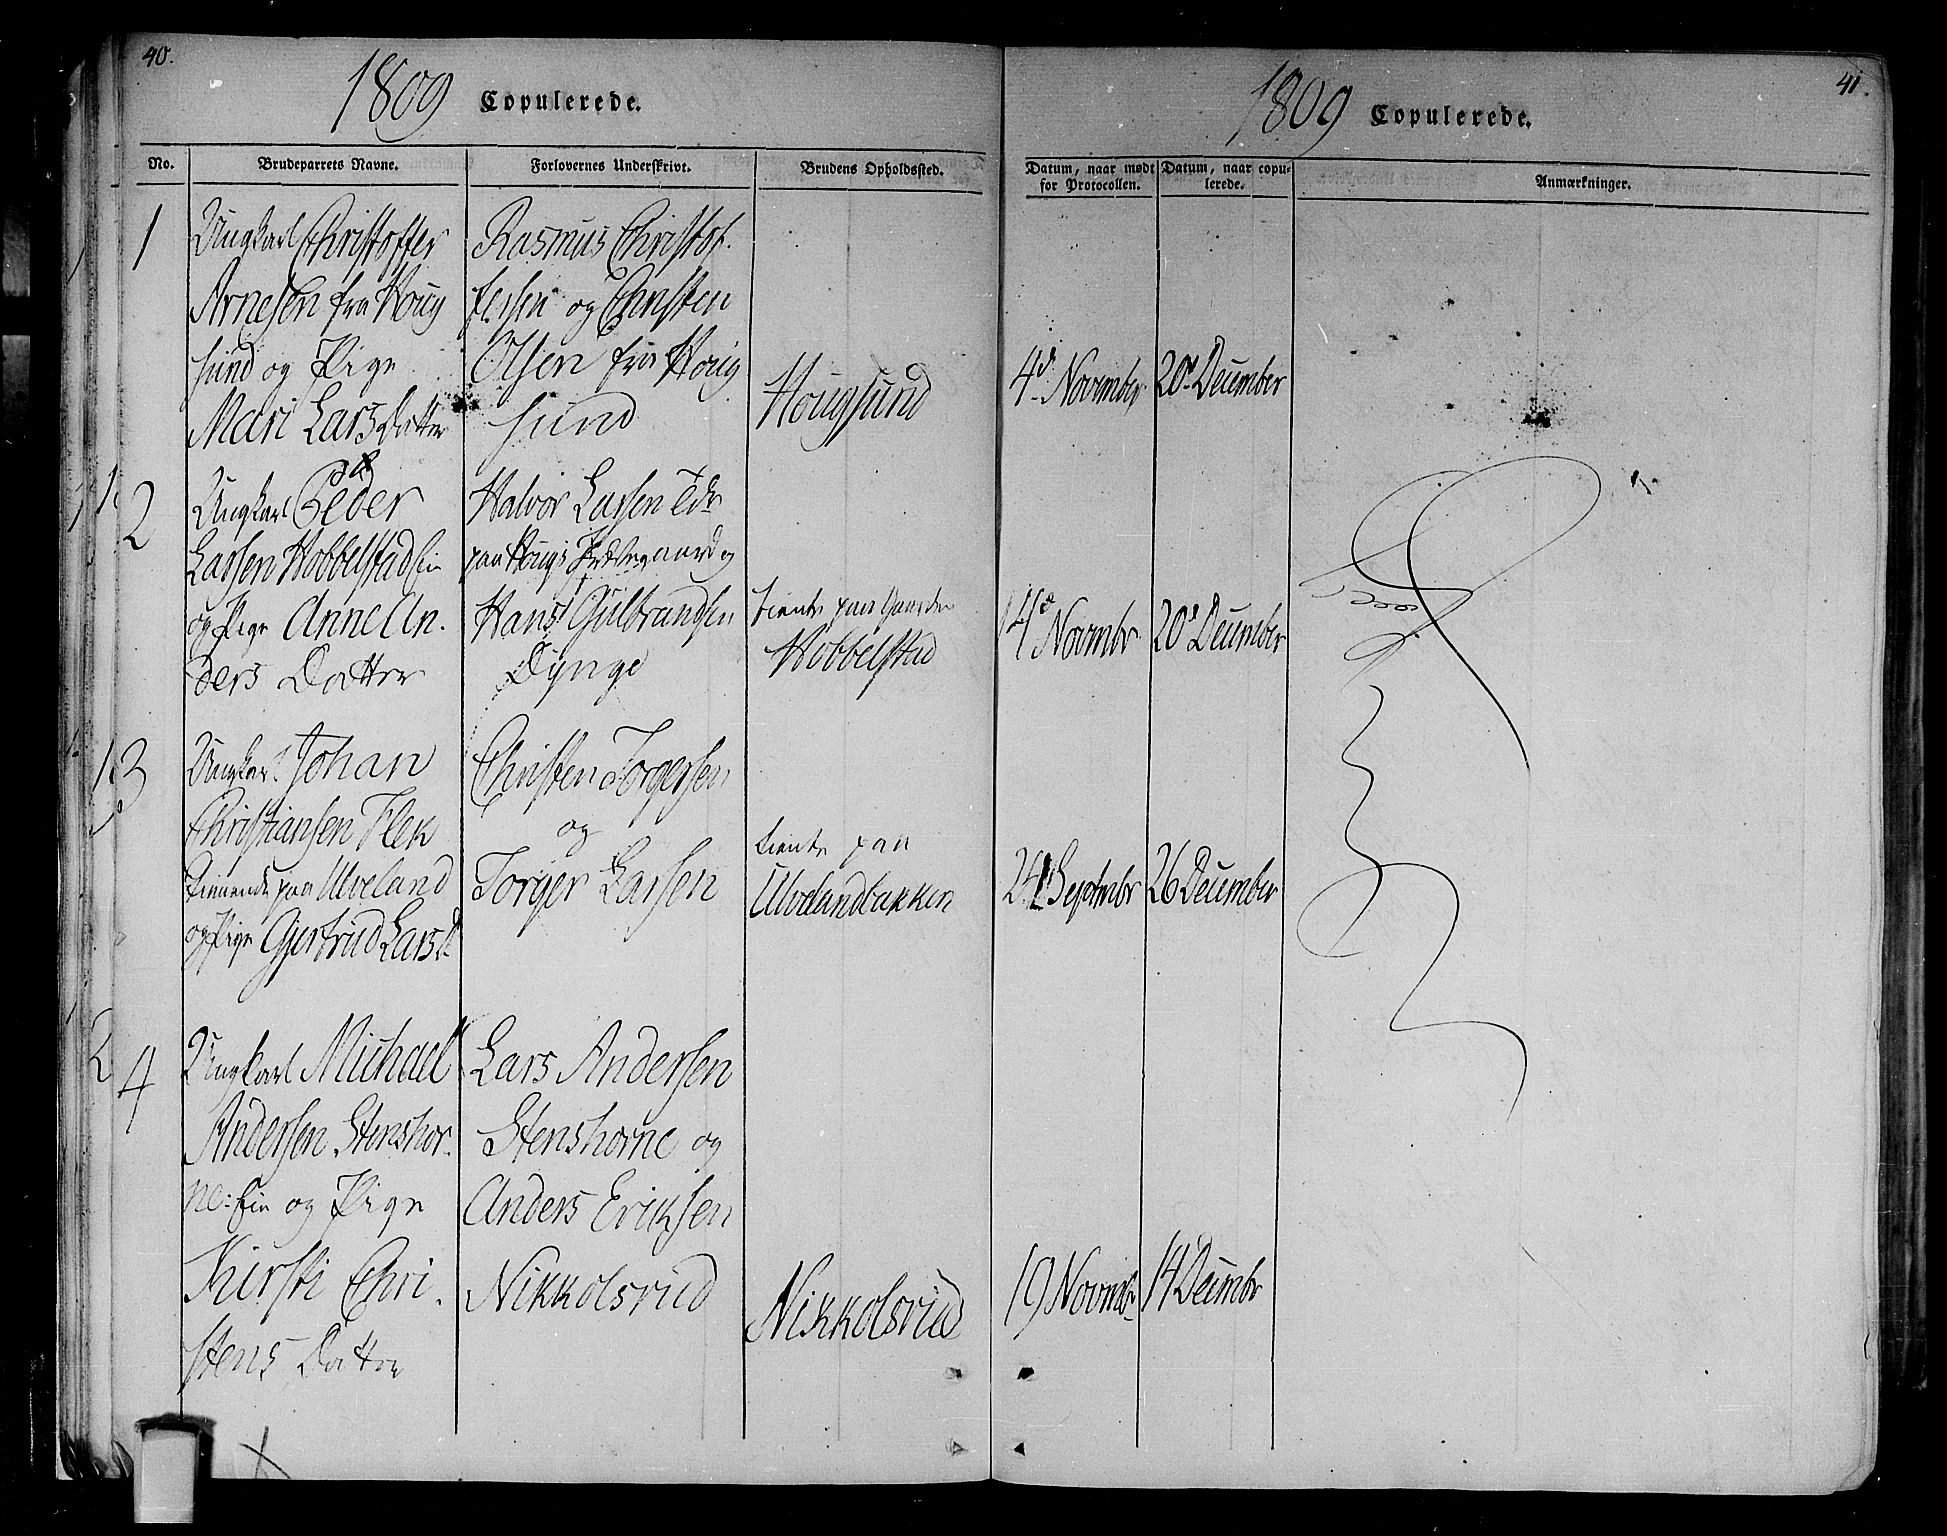 40.
1809 Copulerede.
No. Brudeparrets Navne. Forlovernes Underskrivt. Brudens Opholdssted.
1
Ungkarl Christoffer
Arnesen fra Houg
sund og Pige
Mari Lars Datter
Rasmus Christof-
fersen og Christen
Olsen fra Houg
sund
Hougsund
2
Ungkarl Peder
Larsen Hobbelstad Eie
og Pige Anne An-
ders Datter
Halvor Larsen
paa Hougs og
Hans Gulbrandsen
Dynge
tiente paa Gaarden
Hobbelstad
3
Ungkarl Johan
Christiansen Flek
tienende paa Ulveland
og Pige Gjertrud Larsd
Christen Torgersen
og
Torger Larsen
tiente paa
Ulvelandbakken
4
Ungkarl Michael
Andersen Stenshor-
ne: Eie og Pige
Kirsti Chri-
stens Datter
Lars Andersen
Stenshorne og
Anders Eriksen
Nikkolsrud
Nikkolsrud
41.
1809 Copulerede.
Datum, naar mødt for Protocollen. Datum, naar copulerede. Anmærkninger.
4d November 20d December
14d Novembr 20d December
24 Septembr 26 December
19 Novembr 14 Decembr